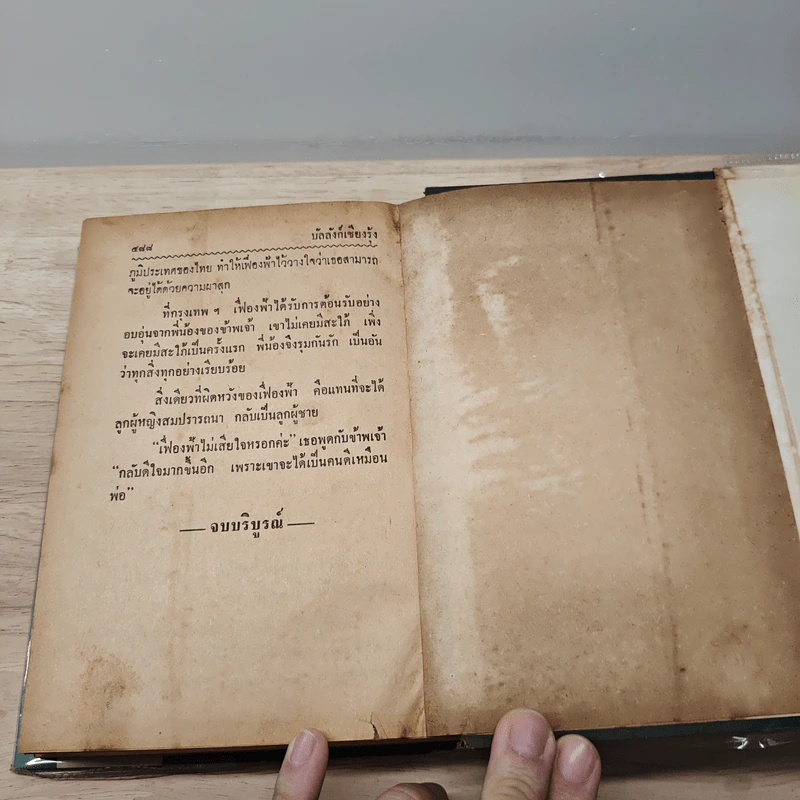 ๕๘๘ บัลลังก์เชียงรุ้ง
ภูมิประเทศของไทย ทำให้เฟื่องฟ้าไว้วางใจว่าเธอสามารถ
จะอยู่ได้ด้วยความผาสุก
ที่กรุงเทพ ฯ เฟื่องฟ้าได้รับการต้อนรับอย่าง
อบอุ่นจากพี่น้องของข้าพเจ้า เขาไม่เคยมีสะใภ้ เพิ่ง
จะเคยมีสะใภ้เป็นครั้งแรก พี่น้องจึงรุมกันรัก เป็นอัน
ว่าทุกสิ่งทุกอย่างเรียบร้อย
สิ่งเดียวที่ผิดหวังของเฟื่องฟ้า คือแทนที่จะได้
ลูกผู้หญิงสมปรารถนา กลับเป็นลูกผู้ชาย
“เฟื่องฟ้าไม่เสียใจหรอกค่ะ” เธอพูดกับข้าพเจ้า
“กลับดีใจมากขึ้นอีก เพราะเขาจะได้เป็นคนดีเหมือน
พ่อ”
— จบบริบูรณ์ —